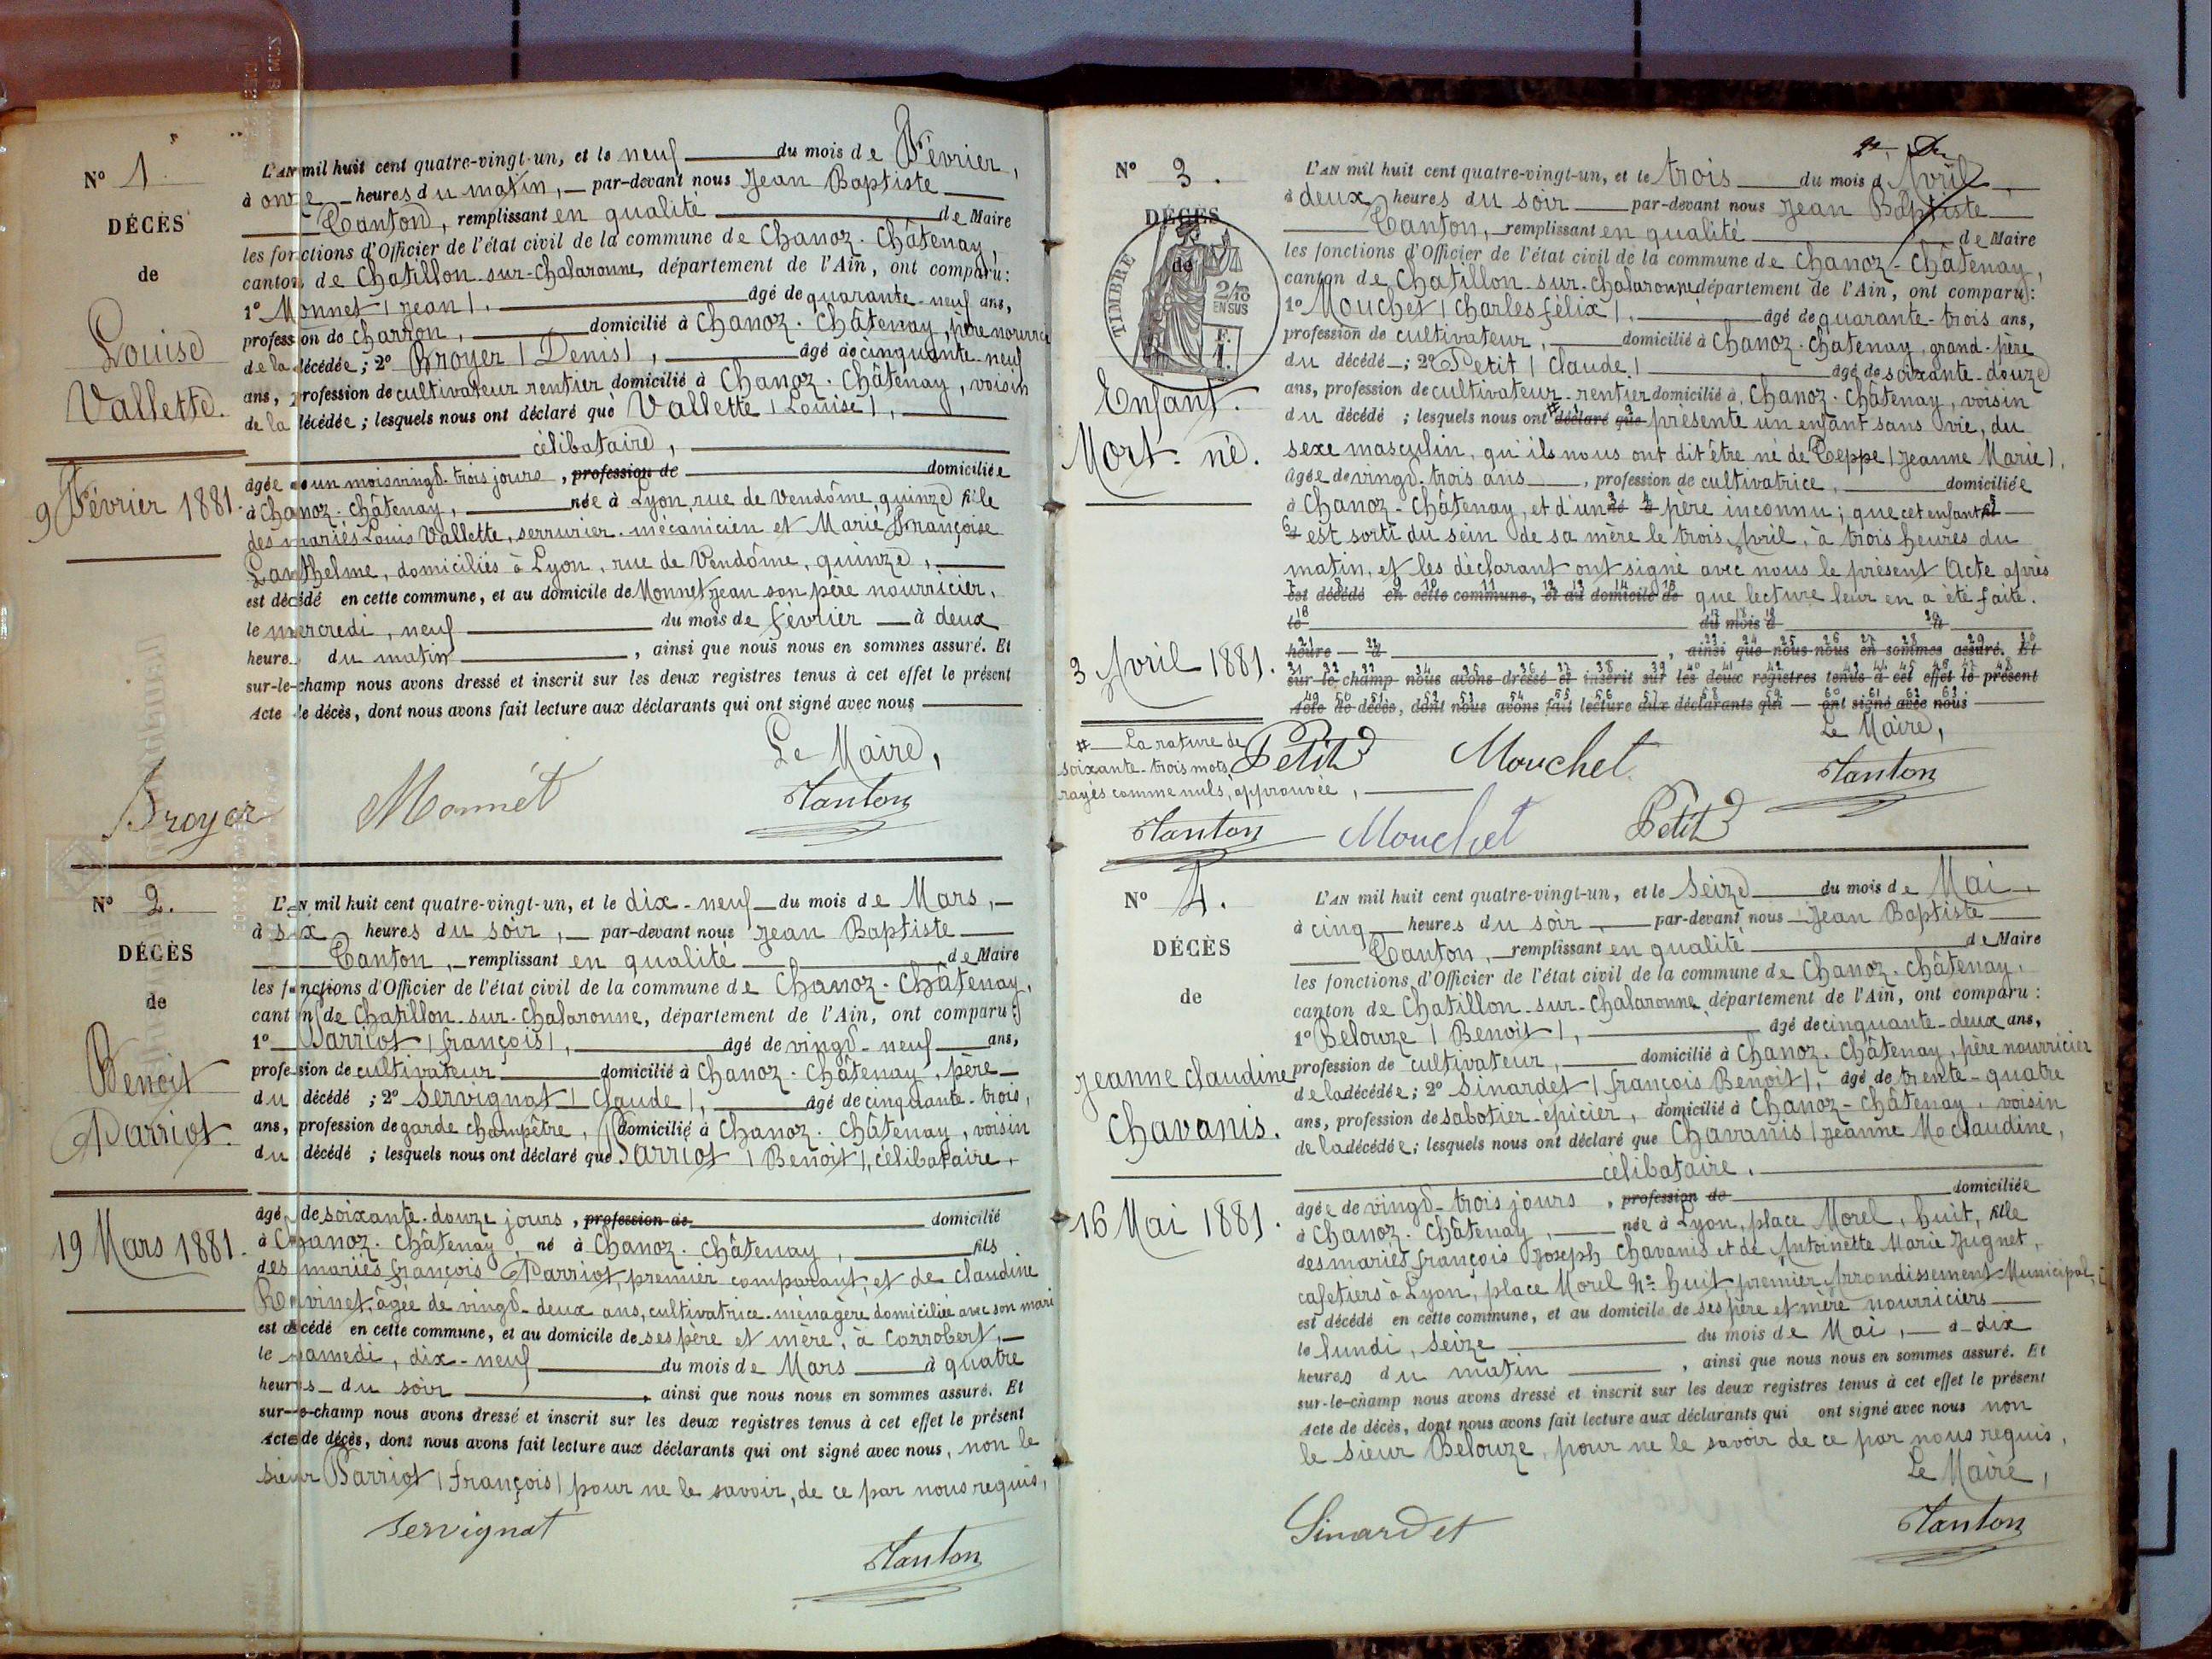 N° 1.
DÉCÈS
de
Louise
Vallette.
9 Février 1881.
L'AN mil huit cent quatre-vingt-un, et le neuf du mois de Février,
à onze heures du matin, par-devant nous Jean Baptiste
Tanton, remplissant en qualité de Maire
les fonctions d'Officier de l'état civil de la commune de Chanoz-Châtenay,
canton de Chatillon-sur-Chalaronne, département de l'Ain, ont comparu:
1° Monnet (Jean), âgé de quarante-neuf ans,
profession de charron, domicilié à Chanoz-Châtenay, père nourricier
de la décédée; 2° Broyer (Denis), âgé de cinquante-neuf
ans, profession de cultivateur rentier domicilié à Chanoz-Châtenay, voisin
de la décédée; lesquels nous ont déclaré que Vallette (Louise),
célibataire,
âgée de un mois vingt-trois jours, profession de domiciliée
à Chanoz-Châtenay, née à Lyon, rue de Vendôme, quinze, fille
des mariés Louis Vallette, serrurier-mécanicien et Marie Françoise
Lanthelme, domiciliés à Lyon, rue de Vendôme, quinze,
est décédé en cette commune, et au domicile de Monnet Jean son père nourricier,
le mercredi, neuf du mois de février à deux
heure du matin, ainsi que nous nous en sommes assuré. Et
sur-le-champ nous avons dressé et inscrit sur les deux registres tenus à cet effet le présent
Acte de décès, dont nous avons fait lecture aux déclarants qui ont signé avec nous
Le Maire,
Broyer Monnét Tanton
N° 2.
DÉCÈS
de
Benoit
Parriot.
19 Mars 1881.
L'AN mil huit cent quatre-vingt-un, et le dix-neuf du mois de Mars,
à six heures du soir, par-devant nous Jean Baptiste
Tanton, remplissant en qualité de Maire
les fonctions d'Officier de l'état civil de la commune de Chanoz-Châtenay,
canton de Chatillon-sur-Chalaronne, département de l'Ain, ont comparu:
1° Parriot (françois), âgé de vingt-neuf ans,
profession de cultivateur domicilié à Chanoz-Châtenay, père
du décédé; 2° Servignat (Claude), âgé de cinquante-trois,
ans, profession de garde champêtre, domicilié à Chanoz-Châtenay, voisin
du décédé; lesquels nous ont déclaré que Parriot (Benoit), célibataire,
âgé de soixante-douze jours, profession de domicilié
à Chanoz-Châtenay, né à Chanoz-Châtenay, fils
des mariés françois Parriot, premier comparant, et de Claudine
Ravinet, âgée de vingt-deux ans, cultivatrice-ménagère domiciliée avec son mari
est décédé en cette commune, et au domicile de ses père et mère, à Corrobert,
le samedi, dix-neuf du mois de Mars à quatre
heures du soir, ainsi que nous nous en sommes assuré. Et
sur-le-champ nous avons dressé et inscrit sur les deux registres tenus à cet effet le présent
Acte de décès, dont nous avons fait lecture aux déclarants qui ont signé avec nous, non le
sieur Parriot (françois) pour ne le savoir, de ce par nous requis,
Servignat
Tanton
N° 3.
DÉCÈS
de
TIMBRE
2/10
EN SUS
F.
1.
Enfant.
Mort-né.
3 Avril 1881.
L'AN mil huit cent quatre-vingt-un, et le trois du mois d'Avril
à deux heures du soir par-devant nous Jean Baptiste
Tanton, remplissant en qualité de Maire
les fonctions d'Officier de l'état civil de la commune de Chanoz-Châtenay,
canton de Chatillon-sur-Chalaronne département de l'Ain, ont comparu:
1° Mouchet (Charles félix), âgé de quarante-trois ans,
profession de cultivateur, domicilié à Chanoz-Châtenay, grand-père
du décédé; 2° Petit (Claude) âgé de soixante-douze
ans, profession de cultivateur-rentier domicilié à Chanoz-Châtenay, voisin
du décédé; lesquels nous ont déclaré que présenté un enfant sans vie, du
sexe masculin, qu'ils nous ont dit être né de Teppe (Jeanne Marie),
âgée de vingt-trois ans, profession de cultivatrice, domiciliée
à Chanoz-Châtenay, et d'un né à père inconnu; que cet enfant
est sorti du sein de sa mère le trois Avril, à trois heures du
matin, et les déclarant ont signé avec nous le présent Acte après
est décédé en cette commune, et au domicile de que lecture leur en a été faite.
le du mois d à
heure d, ainsi que nous nous en sommes assuré. Et
sur-le-champ nous avons dressé et inscrit sur les deux registres tenus à cet effet le présent
Acte de décès, dont nous avons fait lecture aux déclarants qui ont signé avec nous
Le Maire,
La rature de
soixante-trois mots
rayés comme nuls, approuvée,
Petit Mouchet Tanton
Tanton Mouchet Petit
N° 4.
DÉCÈS
de
Jeanne Claudine
Chavanis.
16 Mai 1881.
L'AN mil huit cent quatre-vingt-un, et le Seize du mois de Mai
à cinq heures du soir, par-devant nous Jean Baptiste
Tanton, remplissant en qualité de Maire
les fonctions d'Officier de l'état civil de la commune de Chanoz-Châtenay,
canton de Chatillon-sur-Chalaronne, département de l'Ain, ont comparu:
1° Belouze (Benoit), âgé de cinquante-deux ans,
profession de cultivateur, domicilié à Chanoz-Châtenay, père nourricier
de la décédée; 2° Sinardet (françois Benoit), âgé de trente-quatre
ans, profession de sabotier-épicier, domicilié à Chanoz-Châtenay, voisin
de la décédée; lesquels nous ont déclaré que Chavanis (Jeanne Me Claudine,
célibataire,
âgée de vingt-trois jours, profession de domiciliée
à Chanoz-Châtenay, née à Lyon, place Morel, huit, fille
des mariés françois Joseph Chavanis et de Antoinette Marie Jugnet,
cafetiers à Lyon, place Morel N° huit, premier Arrondissement Municipal,
est décédé en cette commune, et au domicile de ses père et mère nourriciers
le lundi, seize du mois de Mai, à dix
heures du matin, ainsi que nous nous en sommes assuré. Et
sur-le-champ nous avons dressé et inscrit sur les deux registres tenus à cet effet le présent
Acte de décès, dont nous avons fait lecture aux déclarants qui ont signé avec nous non
le sieur Belouze, pour ne le savoir de ce par nous requis,
Le Maire,
Sinardet Tanton